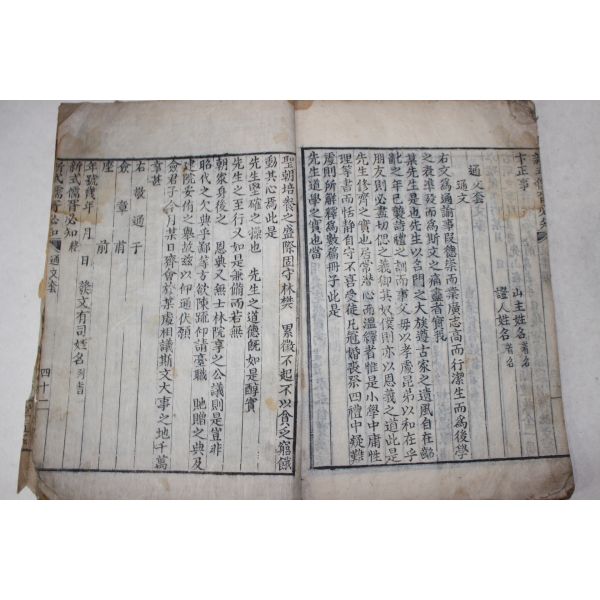 卞正事
山主姓名 着名
證人姓名 着名
通文套
通文
右文爲通諭事叚德崇而業廣志高而行潔生而爲後學
之表準歿而爲斯文之痛盡者實我
某先生是也先生以名門之大族遵古家之遺風自在齠
齔之年已襲詩禮之訓而事父母以孝處昆弟以和在乎
朋友則必盡切偲之義御其奴僕則亦以恩義之道此是
先生修齊之實也居常潛心而溫繹者惟是小學中庸性
理等書而恬靜自守不喜受徒凡冠婚喪祭四禮中疑難
處則所解釋爲數篇冊子此是
先生道學之實也當
聖朝培養之盛際固守林樊 累徵不起不以貧乏窮餓
動其心焉此是
先生堅確之操也 先生之道德旣如是醇實
先生之至行又如是兼備而若無
朝家身後之 恩典又無士林院享之公議則是豈非
昭代之欠典乎鄙等方欲陳䟽仰請臺職 貤贈之典及
建院妥侑之擧故玆以仰通伏願
僉君子今月某日齊會於某處相議斯文大事之地千萬
幸甚
右敬通于
僉章甫
座 前
年號幾年 月 日 發文有司姓名 列書
新式儒胥必知終
新式儒胥必知 通文套 四十二